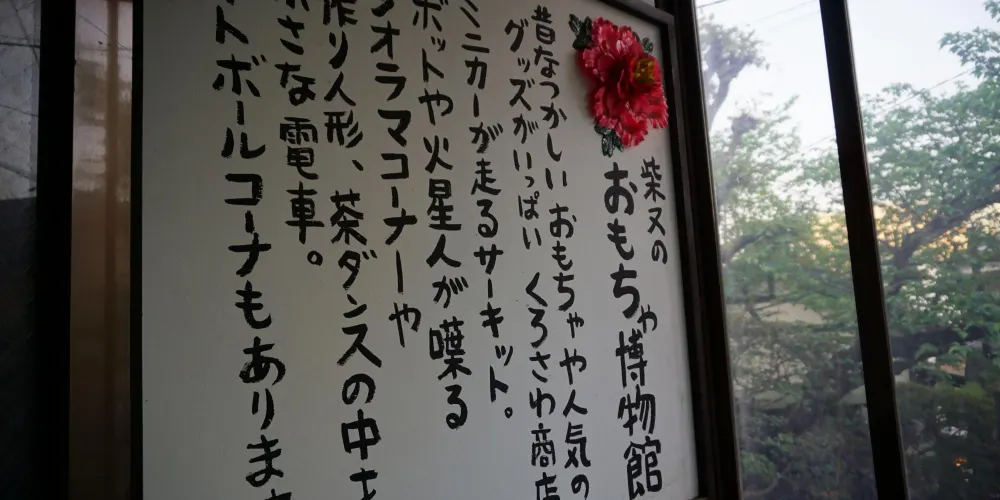 柴又の
おもちゃ博物館
昔なつかしいおもちゃや人気の
グッズがいっぱい くろさわ商店
ミニカーが走るサーキット。
ボットや火星人が喋る
ジオラマコーナーや
作り人形、茶ダンスの中さ
小さな電車。
トボールコーナーもありま